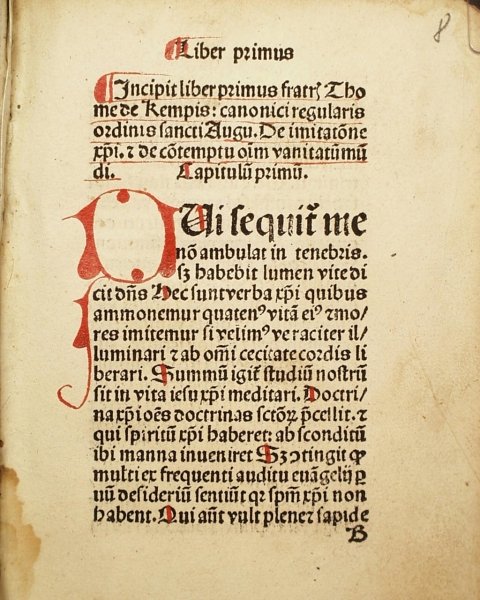 8
Liber primus
Incipit liber primus fratrꝭ Tho
me de Kempis: canonici regularis
ordinis sancti Augu. De imitatōne
xp̄i. ⁊ de cōtemptu oīm vanitatū mū
di. Capitulū primū.
QUi sequit᷑ me
nō ambulat in tenebris.
sꝫ habebit lumen vite di
cit dn̄s Hec sunt verba xp̄i quibus
ammonemur quatenꝰ vitā eiꝰ ⁊ mo/
res imitemur si velimꝰ veraciter il/
luminari ⁊ ab om̄i cecitate cordis li
berari. Summū igit᷑ studiū nostrū
sit in vita iesu xp̄i meditari. Doctri/
na xp̄i oēs doctrinas sctōꝝ p̄cellit. ⁊
qui spiritū xp̄i haberet: absconditū
ibi manna inueniret Sꝫ ↄtingit ꝙ
multi ex frequenti auditu euāgelij ꝑ
uū desideriū sentiūt qꝛ spm̄ xp̄i non
habent. Qui aūt vult plene ⁊ sapide
B